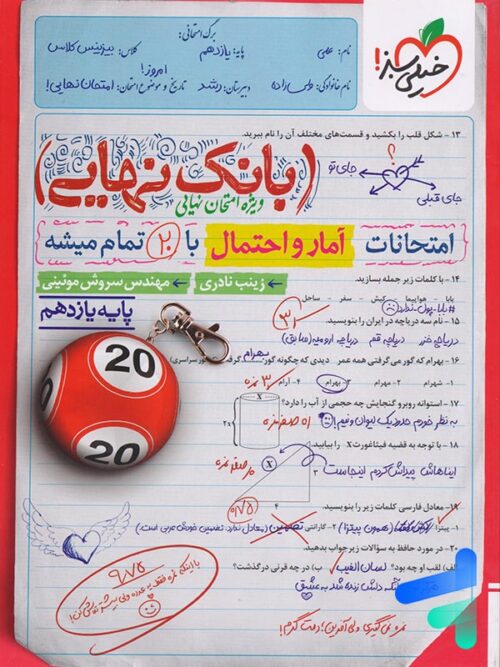 برگ امتحانی:
نام: علی
پایه: یازدهم
کلاس: بیزینس کلاس
امروز!
نام خانوادگی: ولی‌زاده
دبیرستان: رشد
تاریخ و موضوع امتحان: امتحان نهایی!
خیلی سبز!
۱۳ - شکل قلب را بکشید و قسمت‌های مختلف آن را نام ببرید.
؟
جای تو
جای قبلی
(بانک نهایی)
ویژه امتحان نهایی
امتحانات آمار و احتمال با ۲۰ تمام میشه
زینب نادری ← مهندس سروش موئینی
پایه یازدهم
۱۴ - با کلمات زیر جمله بسازید.
بابا - هواپیما - کیش - سفر - ساحل
#بابا_پول_نداره
۱۵ - نام سه دریاچه در ایران را بنویسید.
دریاچه خزر دریاچه قم دریاچه ارومیه (سابق)
۱۶ - بهرام که گور می‌گرفتی همه عمر دیدی که چگونه گور بهرام گرفت
۱- شهرام ۲- مهرام ۳- بهرام ۴- آرام
20
20
۱۷ - استوانه روبرو گنجایش چه حجمی از آب را دارد؟
به نظر خودم حدود یک لیوان و نیم!
X
2x
۱۸ - با توجه به قضیه فیثاغورث X را بیابید.
ایناهاش پیداش کردم اینجاست
۱۹ - معادل فارسی کلمات زیر را بنویسید.
۱- پیتزا (همون پیتزا) ۲- گارانتی تضمین (معادل ندارد. تضمین خودش عربی است.)
۲۰ - در مورد حافظ به سؤالات زیر جواب دهید.
الف) لقب او چه بود؟ لسان الغیب ب) در چه قرنی درگذشت؟
آنکه دلش زنده شد به عشق
۹/۷۵
نمره نمی‌گیری ولی آفرین! دمت گرم!